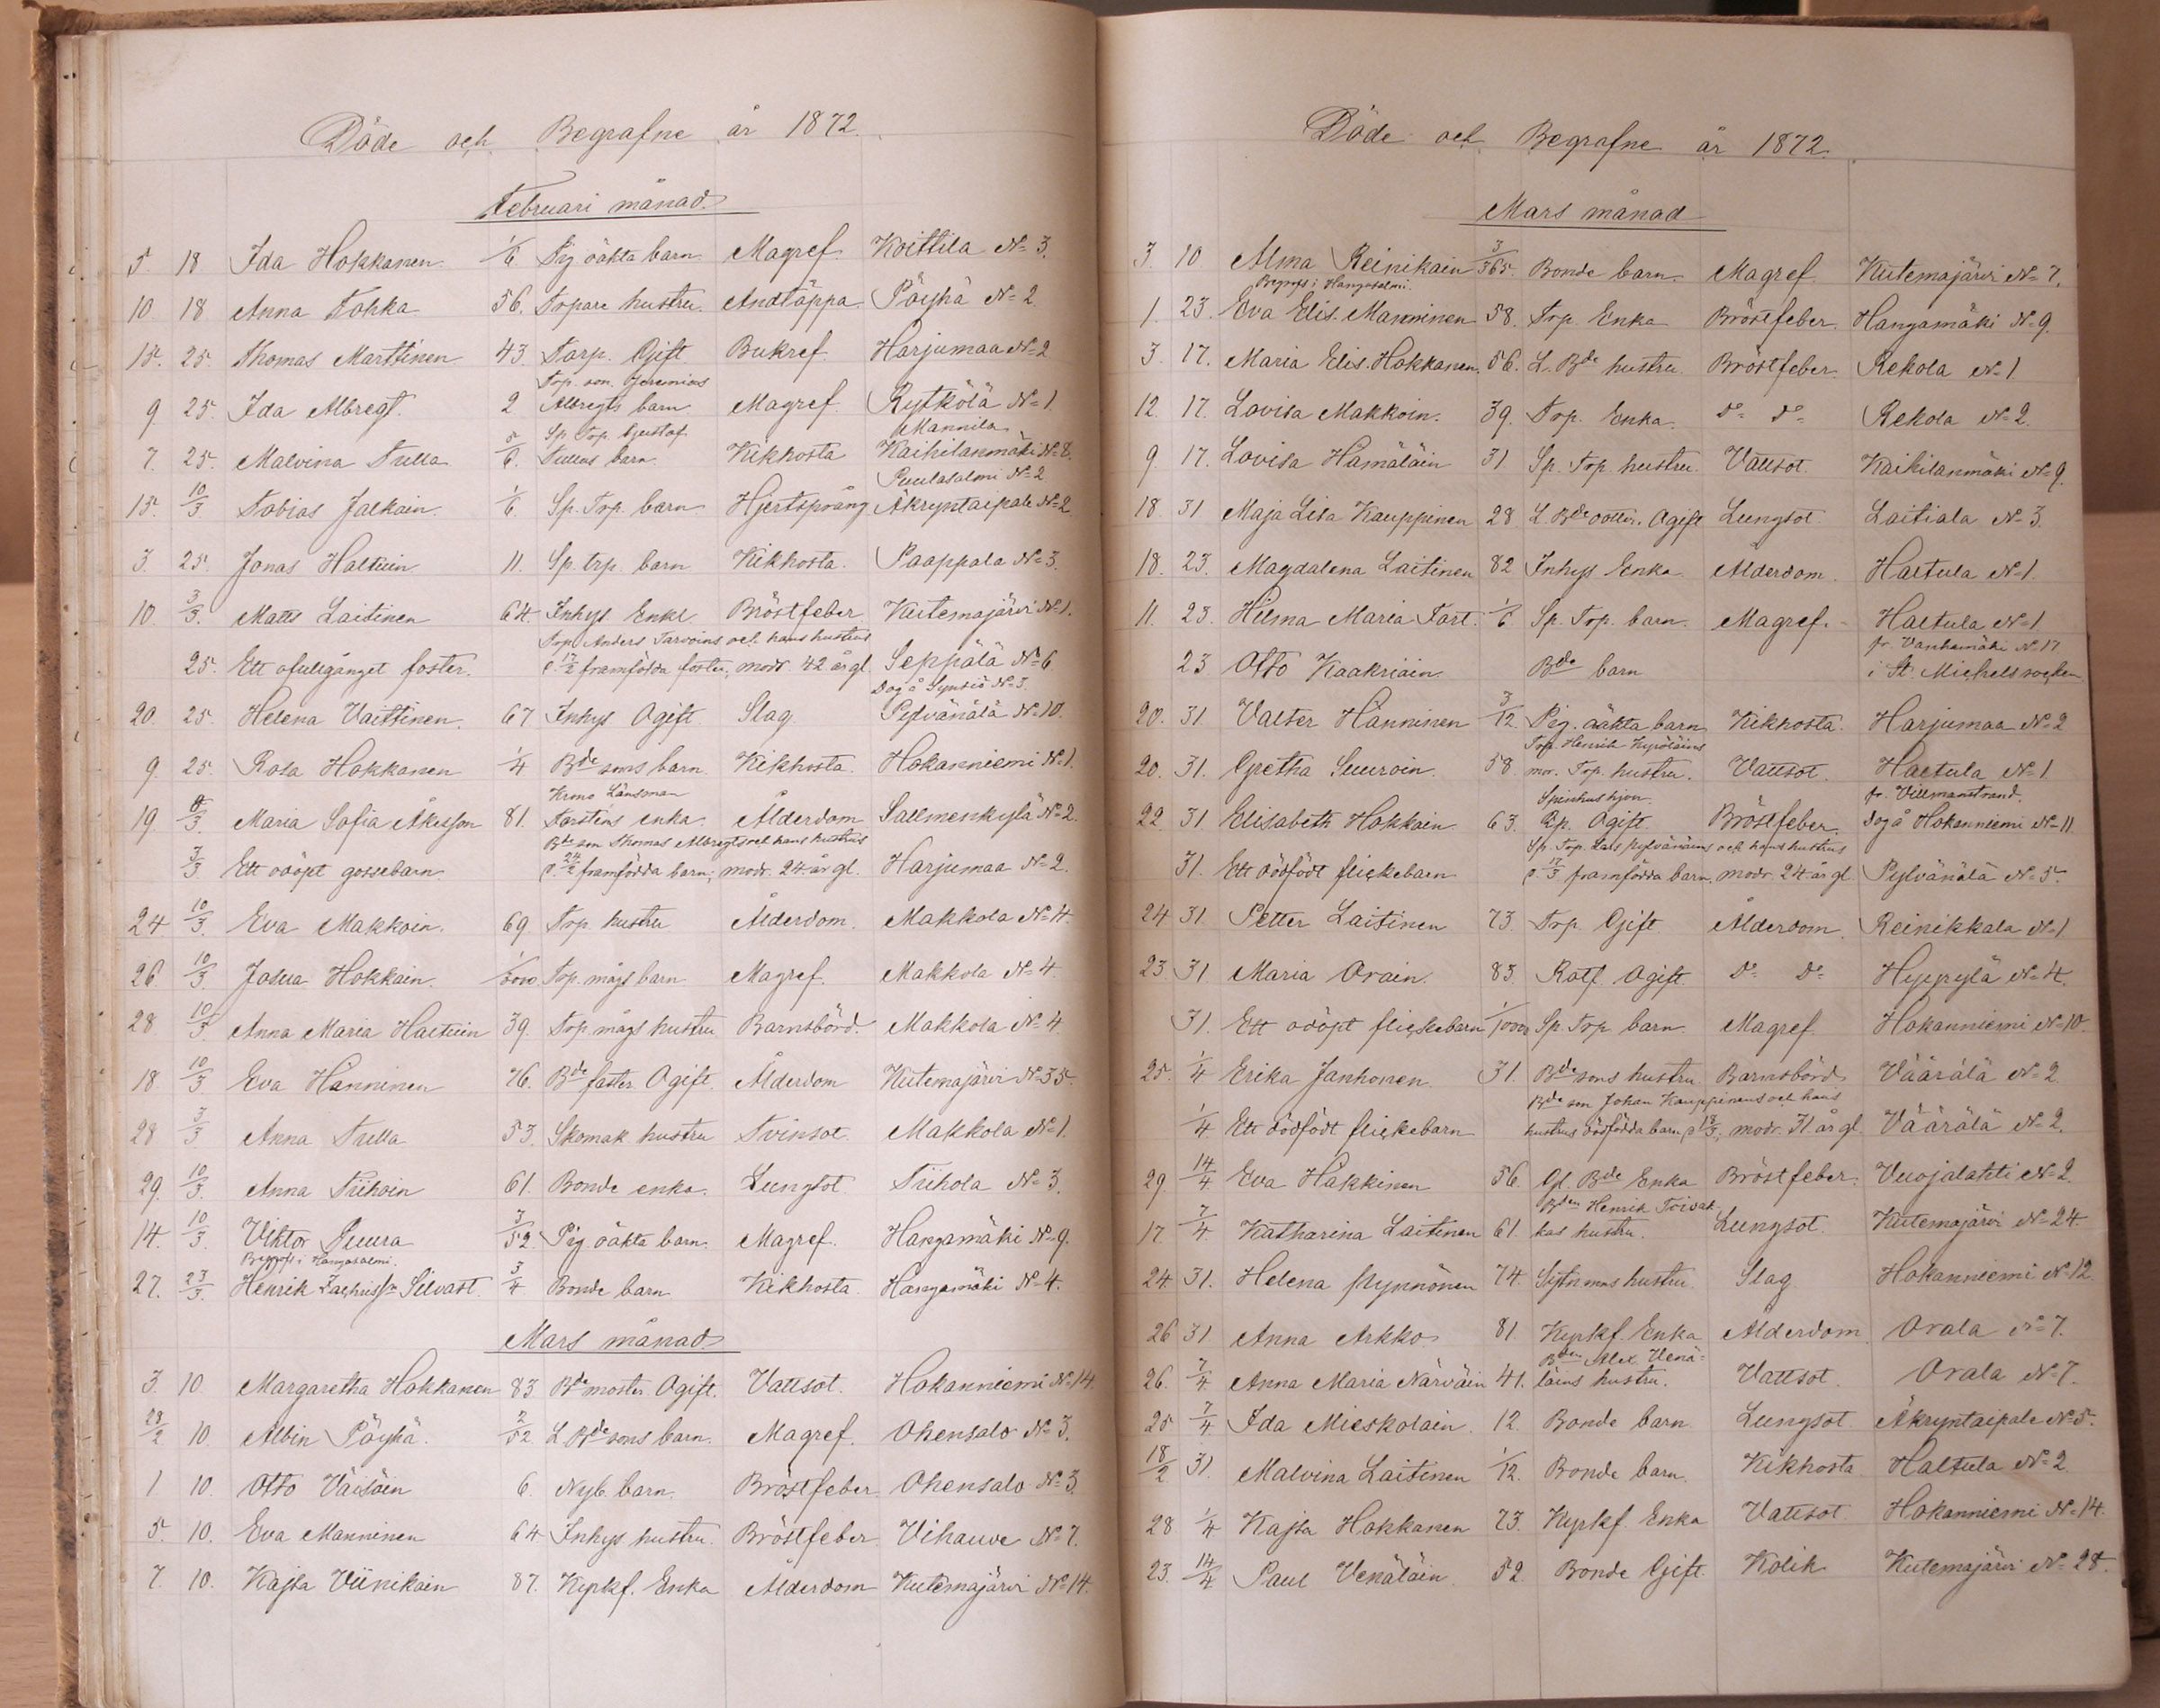 Döde och Begrafne år 1872.
Februari månad.
5. 18 Ida Hokkanen. 1/6 Pig. oäkta barn Magref. Koittila No 3.
10. 18 Anna Tohka 56. Torpare hustru. Andtäppa. Pöyhä No 2
15. 25. Thomas Marttinen 43. Torp. Gift Bukref. Harjumaa No 2
Trp. son. Jeremias
9. 25. Ida Albregt. 2 Albregts barn Magref Rytkölä No 1.
Sp. Trp. Gustaf Mannila
7. 25. Malvina Tulla 5/6. Tullas barn. Kikhosta Kaihilanmäki No 8.
Puulasalmi No 2
15. 10/3. Tobias Jalkain. 1/6. Sp. Trp. barn Hjertsprång Äkryntaipale No 2.
3. 25. Jonas Haltuin 11. Sp. trp. barn Kikhosta. Paappala No 3.
10. 3/3. Matts Laitinen 64. Inhys Enkl. Bröstfeber Kutemajärvi No 1.
Trp. Anders Tarvains och hans hustrus
25. Ett ofullgånget foster. d. 17/2 framfödda foster, modr. 42 år gl. Seppälä No 6
Dog å Synsiö No 3.
20. 25. Helena Vaittinen. 67 Inhys Ogift. Slag. Pylvänälä No 10.
9. 25. Rosa Hokkanen 1/4 Bde sons barn. Kikhosta. Hokanniemi No 1.
Krono Länsman
19. 9/3. Maria Sofia Åkesson 81. Forsténs enka. Ålderdom Sallmenkylä No 2.
Bde son Thomas Albregts och hans hustrus
3/3 Ett odöpt gossebarn. d. 24/2 framfödda barn; modr. 24 år gl. Harjumaa No 2.
24 10/3. Eva Makkoin. 69 Trp. hustru Ålderdom. Makkola No 4.
26. 10/3. Josua Hokkain. 1/1000. Trp. mågs barn Magref. Makkola No 4.
28 10/3 Anna Maria Haltuin 39. Trp. mågs hustru Barnsbörd. Makkola No 4
18. 10/3 Eva Hänninen 76. Bde faster Ogift. Ålderdom Kutemajärvi No 35.
28 3/3 Anna Tulla 53. Skomak. hustru Tvinsot. Makkola No 1.
29. 10/3. Anna Tiihoin 61. Bonde enka. Lungsot Tiihola No 3.
14. 10/3. Viktor Suura 3/52. Pig. oäkta barn. Magref. Hangamäki No 9.
Begrofs i Hangasalmi.
27. 23/3. Henrik Zachrisson Silvast. 3/4 Bonde barn Kikhosta Hangamäki No 4.
Mars månad.
3. 10. Margaretha Hokkanen 83 Bde moster Ogift. Vattsot. Hokanniemi No 14.
28/2 10 Albin Pöyhä. 2/52. L. Bde sons barn. Magref. Ohensalo No 3.
1. 10. Otto Väisäin 6. Nyb. barn. Bröstfeber. Ohensalo No 3.
5. 10. Eva Manninen 64 Inhys hustru. Bröstfeber Vihavue No 7.
7. 10. Kajsa Viinikain 87. Kyrkf. Enka Ålderdom Kutemajärvi No 14.
Döde och Begrafne år 1872.
Mars månad
3. 10 Alma Reinikain 3/365. Bonde barn. Magref Kutemajärvi No 7.
Begrofs i Hangasalmi.
1. 23. Eva Elis. Manninen 58. Trp. Enka Bröstfeber. Hangamäki No 9.
3. 17. Maria Elis. Hokkanen. 56. L. Bde hustru. Bröstfeber. Rekola No 1
12. 17. Lovisa Makkoin. 39. Trp. Enka. do do Rekola No 2.
9. 17. Lovisa Hämäläin 31 Sp. Trp. hustru. Vattsot. Kaihilanmäki No 9.
18. 31 Maja Lisa Kauppinen 28 L. Bde dotter. Ogift Lungsot. Laitiala No 3.
18. 23. Magdalena Laitinen 82 Inhys Enka Ålderdom. Haltula No 1.
11. 23. Hilma Maria Tart. 1/6 Sp. Trp. barn. Magref. Haltula No 1.
fr. Vanhamäki No 17
23 Otto Kaakriain Bde barn i St. Michels socken
20. 31. Valter Hänninen 3/12. Pig. oäkta barn Kikhosta. Harjumaa No 2
Trp. Henrik Hyröläins
20. 31. Gretha Suuroin. 58 mor. Trp. hustru. Vattsot. Haltula No 1.
Spinhushjon. fr. Villmanstrand.
22 31 Elisabeth Hokkain 63. Ogift. Bröstfeber. dog å Hokanniemi No 11.
Sp. Trp. Lars Pylvänäins och hans hustrus
31. Ett dödfödt flickebarn d. 17/3 framfödda barn, modr. 24 år gl. Pylvänälä No 5.
24 31. Petter Laitinen 73. Trp. Gift Ålderdom. Reinikkala No 1
23 31. Maria Orain. 83. Rotf. Ogift. do do Hyppylä No 4.
31. Ett odöpt flickebarn 1/1000 Sp. Trp. barn Magref. Hokanniemi No 10.
25. 1/4 Erika Janhonen 31. Bde sons hustru Barnsbörd Väärälä No 2.
Bde son Johan Kauppinens och hans
1/4. Ett dödfödt flickebarn hustrus dödfödda barn, d. 18/3, modr. 31 år gl. Väärälä No 2.
29. 14/4. Eva Häkkinen 56. Gl. Bde Enka Bröstfeber. Vuojalahti No 2.
Bden Henrik Toivak-
17. 7/4. Katharina Laitinen 61. kas hustru. Lungsot. Kutemajärvi No 24
24 31. Helena Pynnönen 74. Sytnmns hustru Slag Hokanniemi No 12.
26 31. Anna Arkko 81. Kyrkf. Enka Ålderdom. Orala No 7.
Bden Alex. Venä-
26. 7/4. Anna Maria Närväin 41. läins hustru. Vattsot. Orala No 7.
25 7/4. Ida Mieskolain. 12. Bonde barn Lungsot. Äkryntaipale No 5.
18/2 31. Malvina Laitinen 1/12. Bonde barn. Kikhosta Haltula No 2.
28 1/4 Kajsa Hokkanen 73. Kyrkf. Enka Vattsot. Hokanniemi No 14.
23. 14/4 Paul Venäläin. 52. Bonde Gift. Kolik Kutemajärvi No 28.